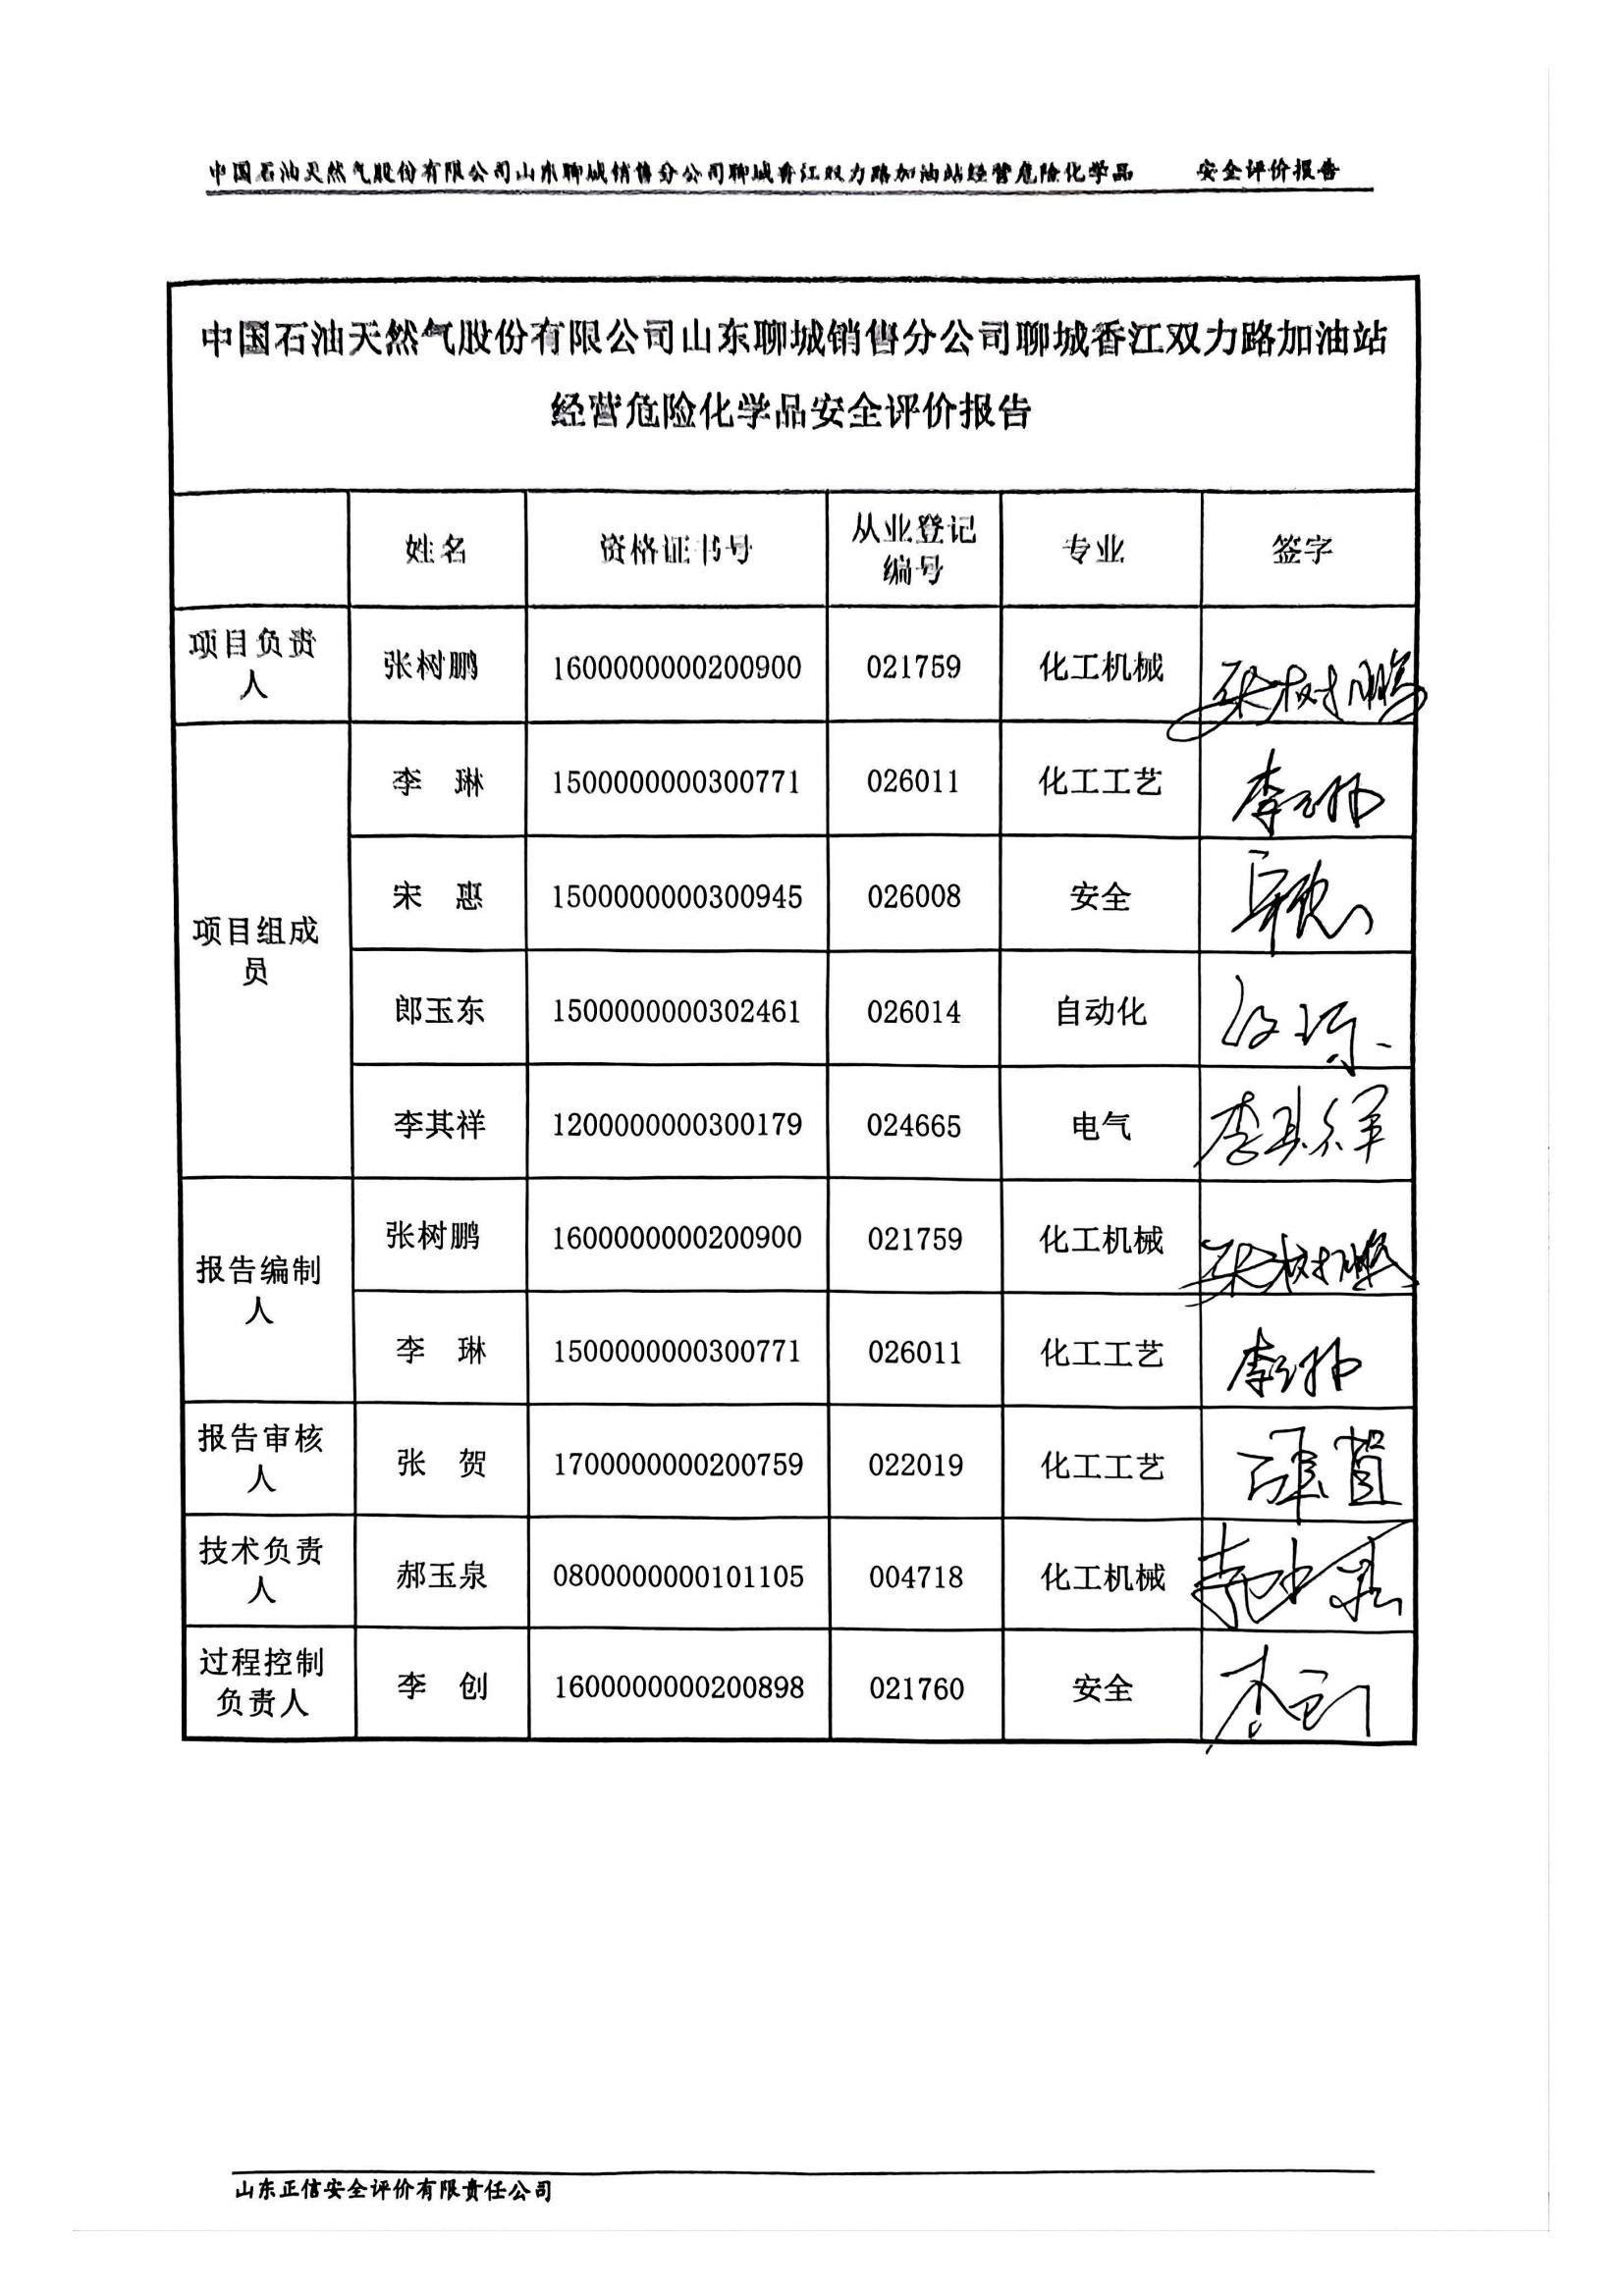 中国石油天然气股份有限公司山东聊城销售分公司聊城香江双力路加油站经营危险化学品 安全评价报告
中国石油天然气股份有限公司山东聊城销售分公司聊城香江双力路加油站
经营危险化学品安全评价报告
姓名 资格证书号 从业登记编号 专业 签字
项目负责人 张树鹏 1600000000200900 021759 化工机械 张树鹏
项目组成员 李 琳 1500000000300771 026011 化工工艺 李琳
宋 惠 1500000000300945 026008 安全 宋惠
郎玉东 1500000000302461 026014 自动化
李其祥 1200000000300179 024665 电气 李其祥
报告编制人 张树鹏 1600000000200900 021759 化工机械 张树鹏
李 琳 1500000000300771 026011 化工工艺 李琳
报告审核人 张 贺 1700000000200759 022019 化工工艺
技术负责人 郝玉泉 0800000000101105 004718 化工机械 郝玉泉
过程控制负责人 李 创 1600000000200898 021760 安全 李创
山东正信安全评价有限责任公司